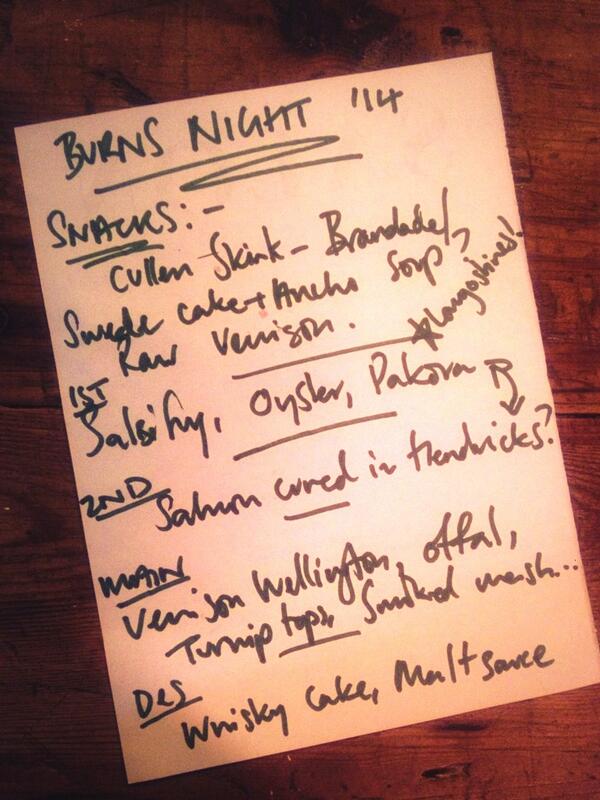 BURNS NIGHT '14
SNACKS:-
Cullen Skink - Brandade/Soup?
Swede cake + Ancho
Raw venison. *Langoustines!
1ST
Salsify, Oyster, Pakora
2ND
Salmon cured in Hendricks?
MAIN
Venison Wellington, offal,
Turnip tops, Smoked mash...
DES
Whisky Cake, Malt sauce